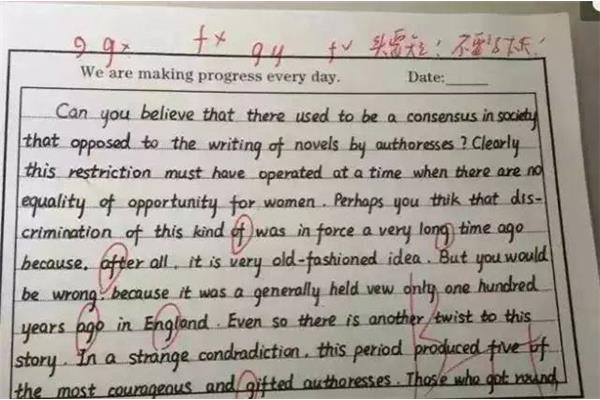 9 g× f× 9 y f✓
We are making progress every day. Date:
Can you believe that there used to be a consensus in society
that opposed to the writing of novels by authoresses? Clearly
this restriction must have operated at a time when there are no
equality of opportunity for women. Perhaps you thik that dis-
crimination of this kind of was in force a very long time ago
because, after all, it is very old-fashioned idea. But you would
be wrong, because it was a generally held vew only one hundred
years ago in England. Even so there is another twist to this
story. In a strange condradiction, this period produced five of
the most courageous and gifted authoresses. Those who got round